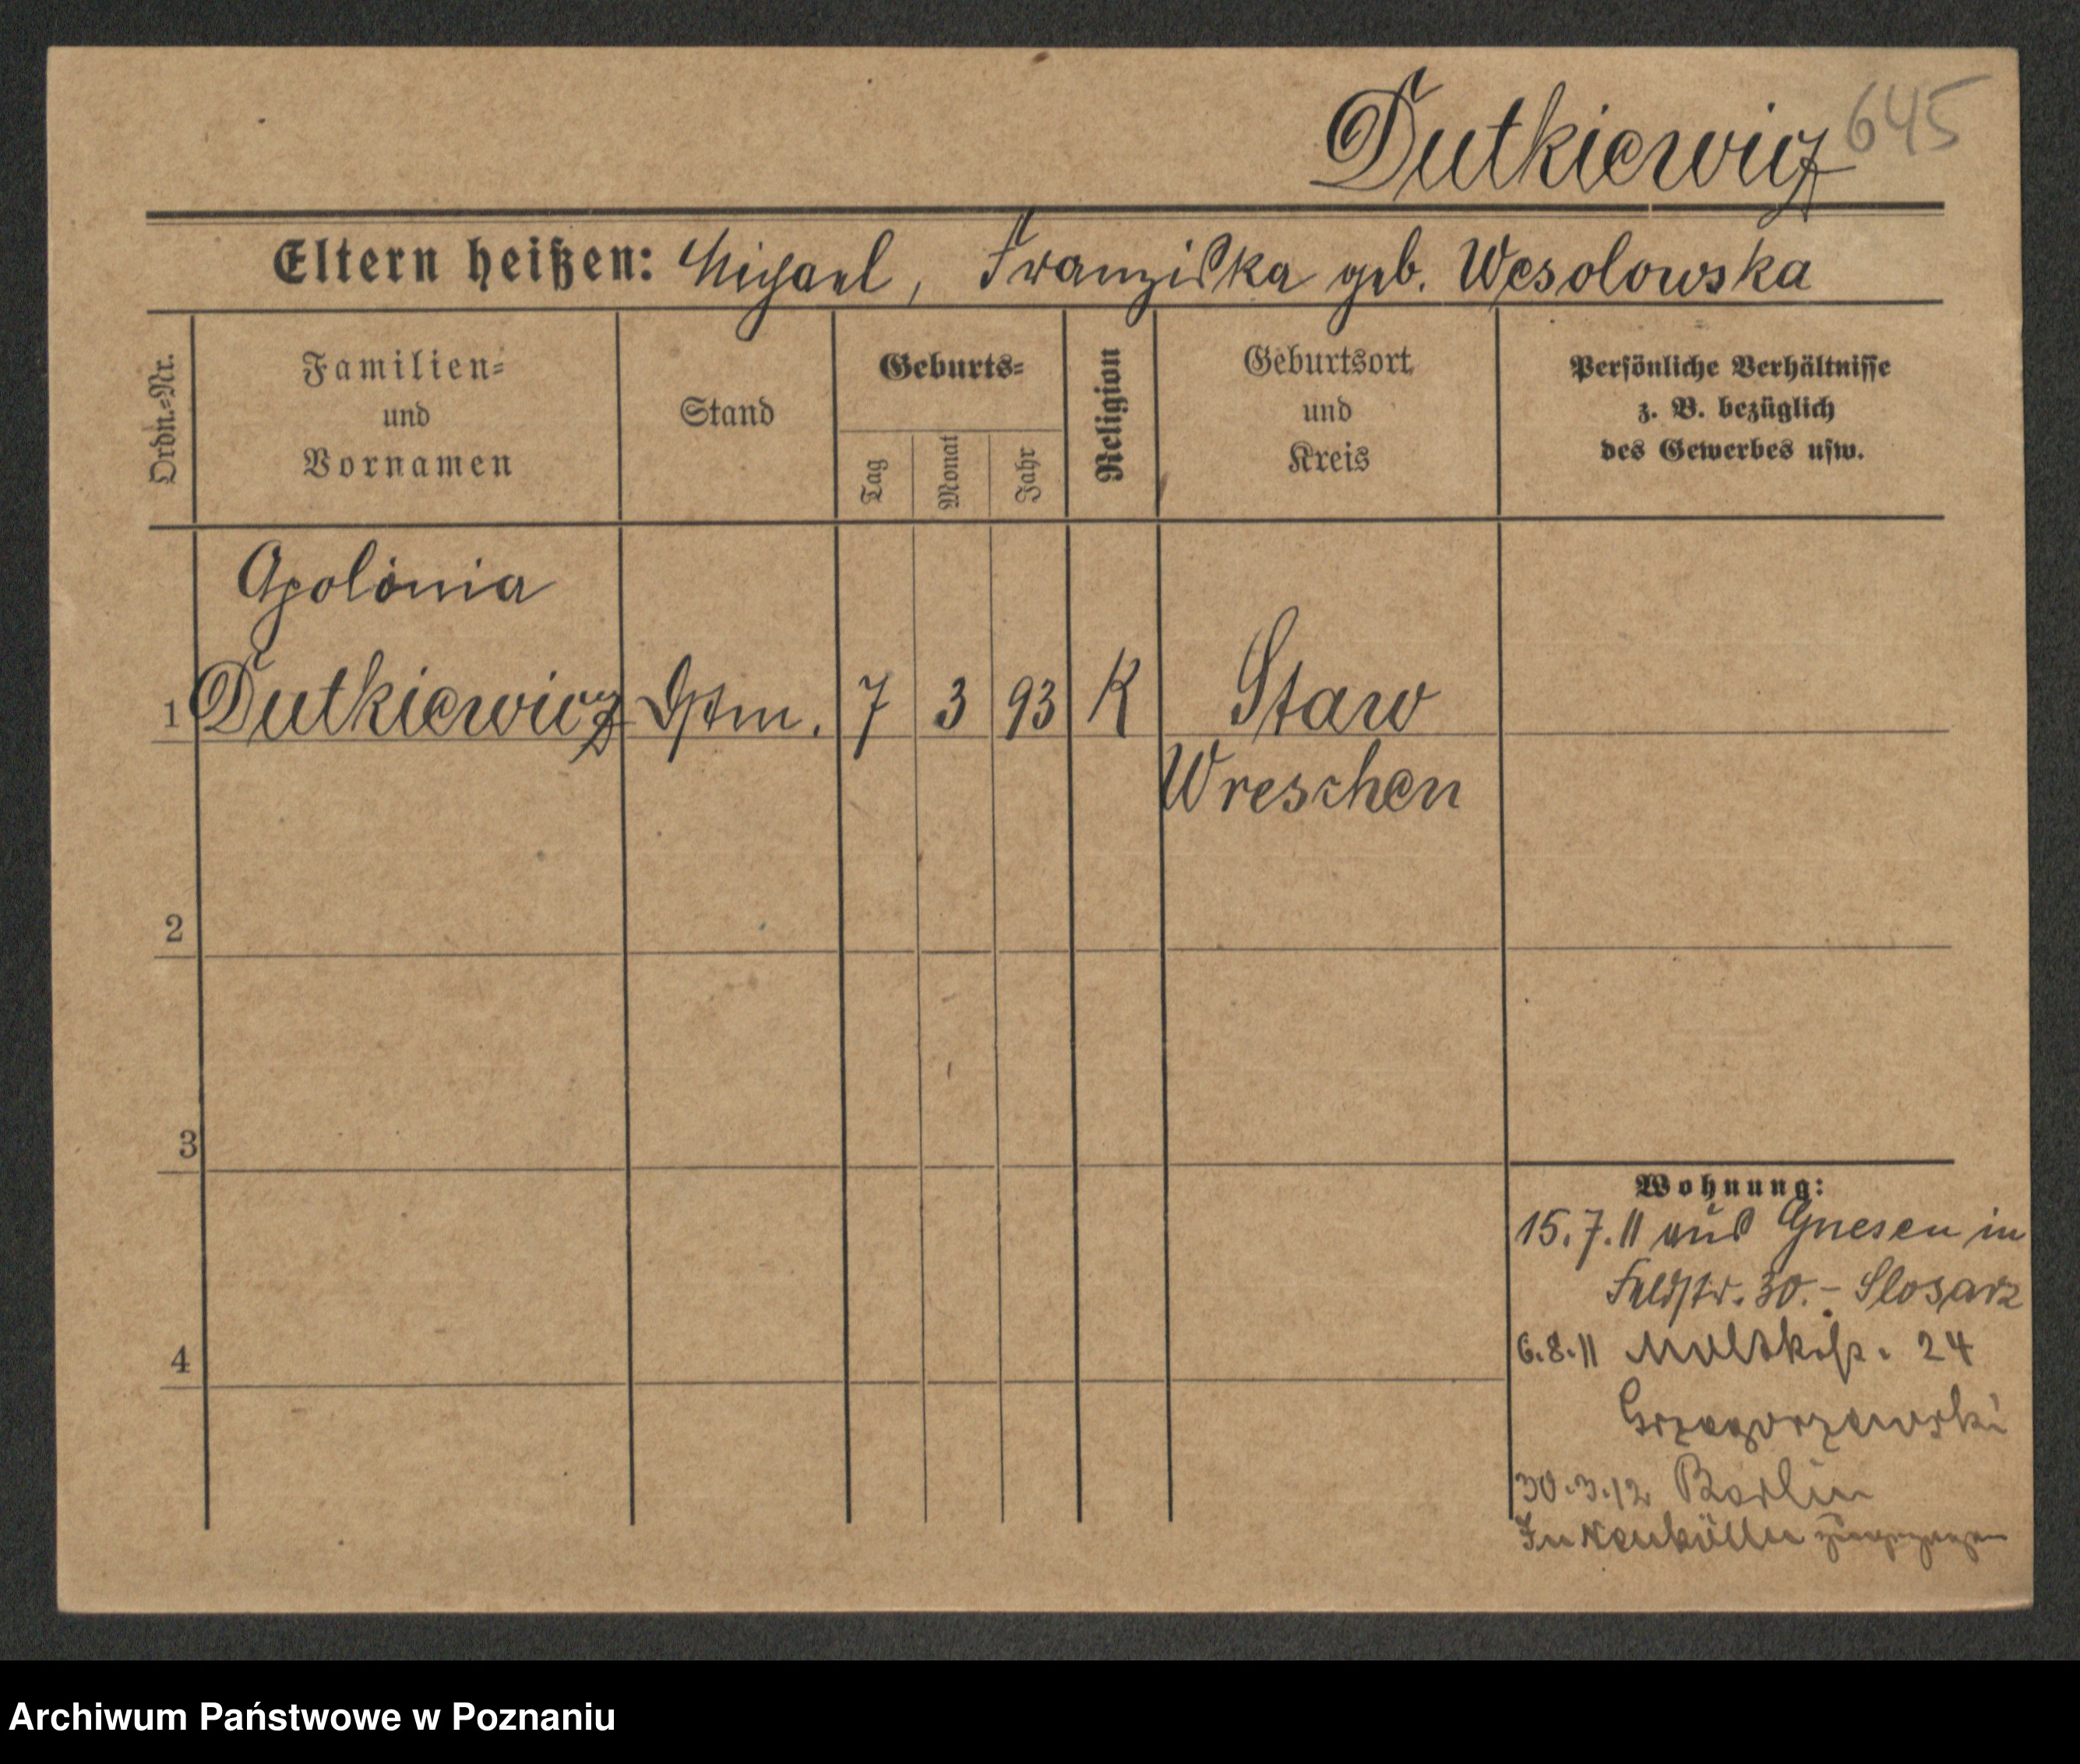 Dutkiewicz 645
Eltern heißen: Michael, Franziska geb. Wesolowska
Ordn.-Nr.
Familien-
und
Vornamen
Stand
Geburts-
Tag
Monat
Jahr
Religion
Geburtsort
und
Kreis
Persönliche Verhältnisse
z. B. bezüglich
des Gewerbes usw.
Apolonia
1 Dutkiewicz 7 3 93 K Staw
Wreschen
2
3
4
Wohnung:
15.7.11 aus Gnesen in
Feldstr. 30.- Slosarz
6.8.11 24
30.3.12 Berlin
In Neukölln zugezogen
Archiwum Państwowe w Poznaniu